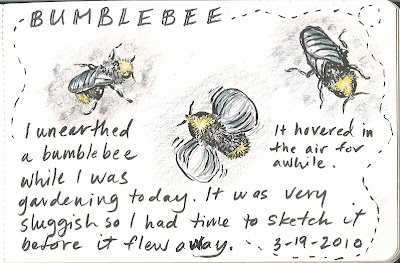 BUMBLEBEE
I unearthed
a bumblebee
while I was
gardening today. It was very
sluggish so I had time to sketch it
before it flew away. 3-19-2010
It hovered in
the air for
awhile.